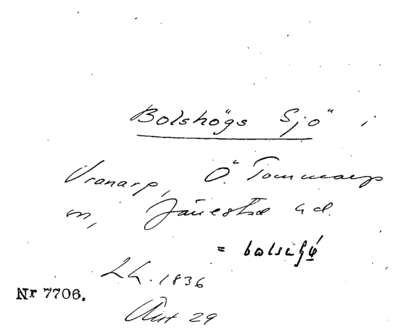 Bolshögs Sjö i
Vranarp, Ö. Tommarp
sn, Järrestad hd.
=
LH. 1836
Akt 29
Nr 7706.